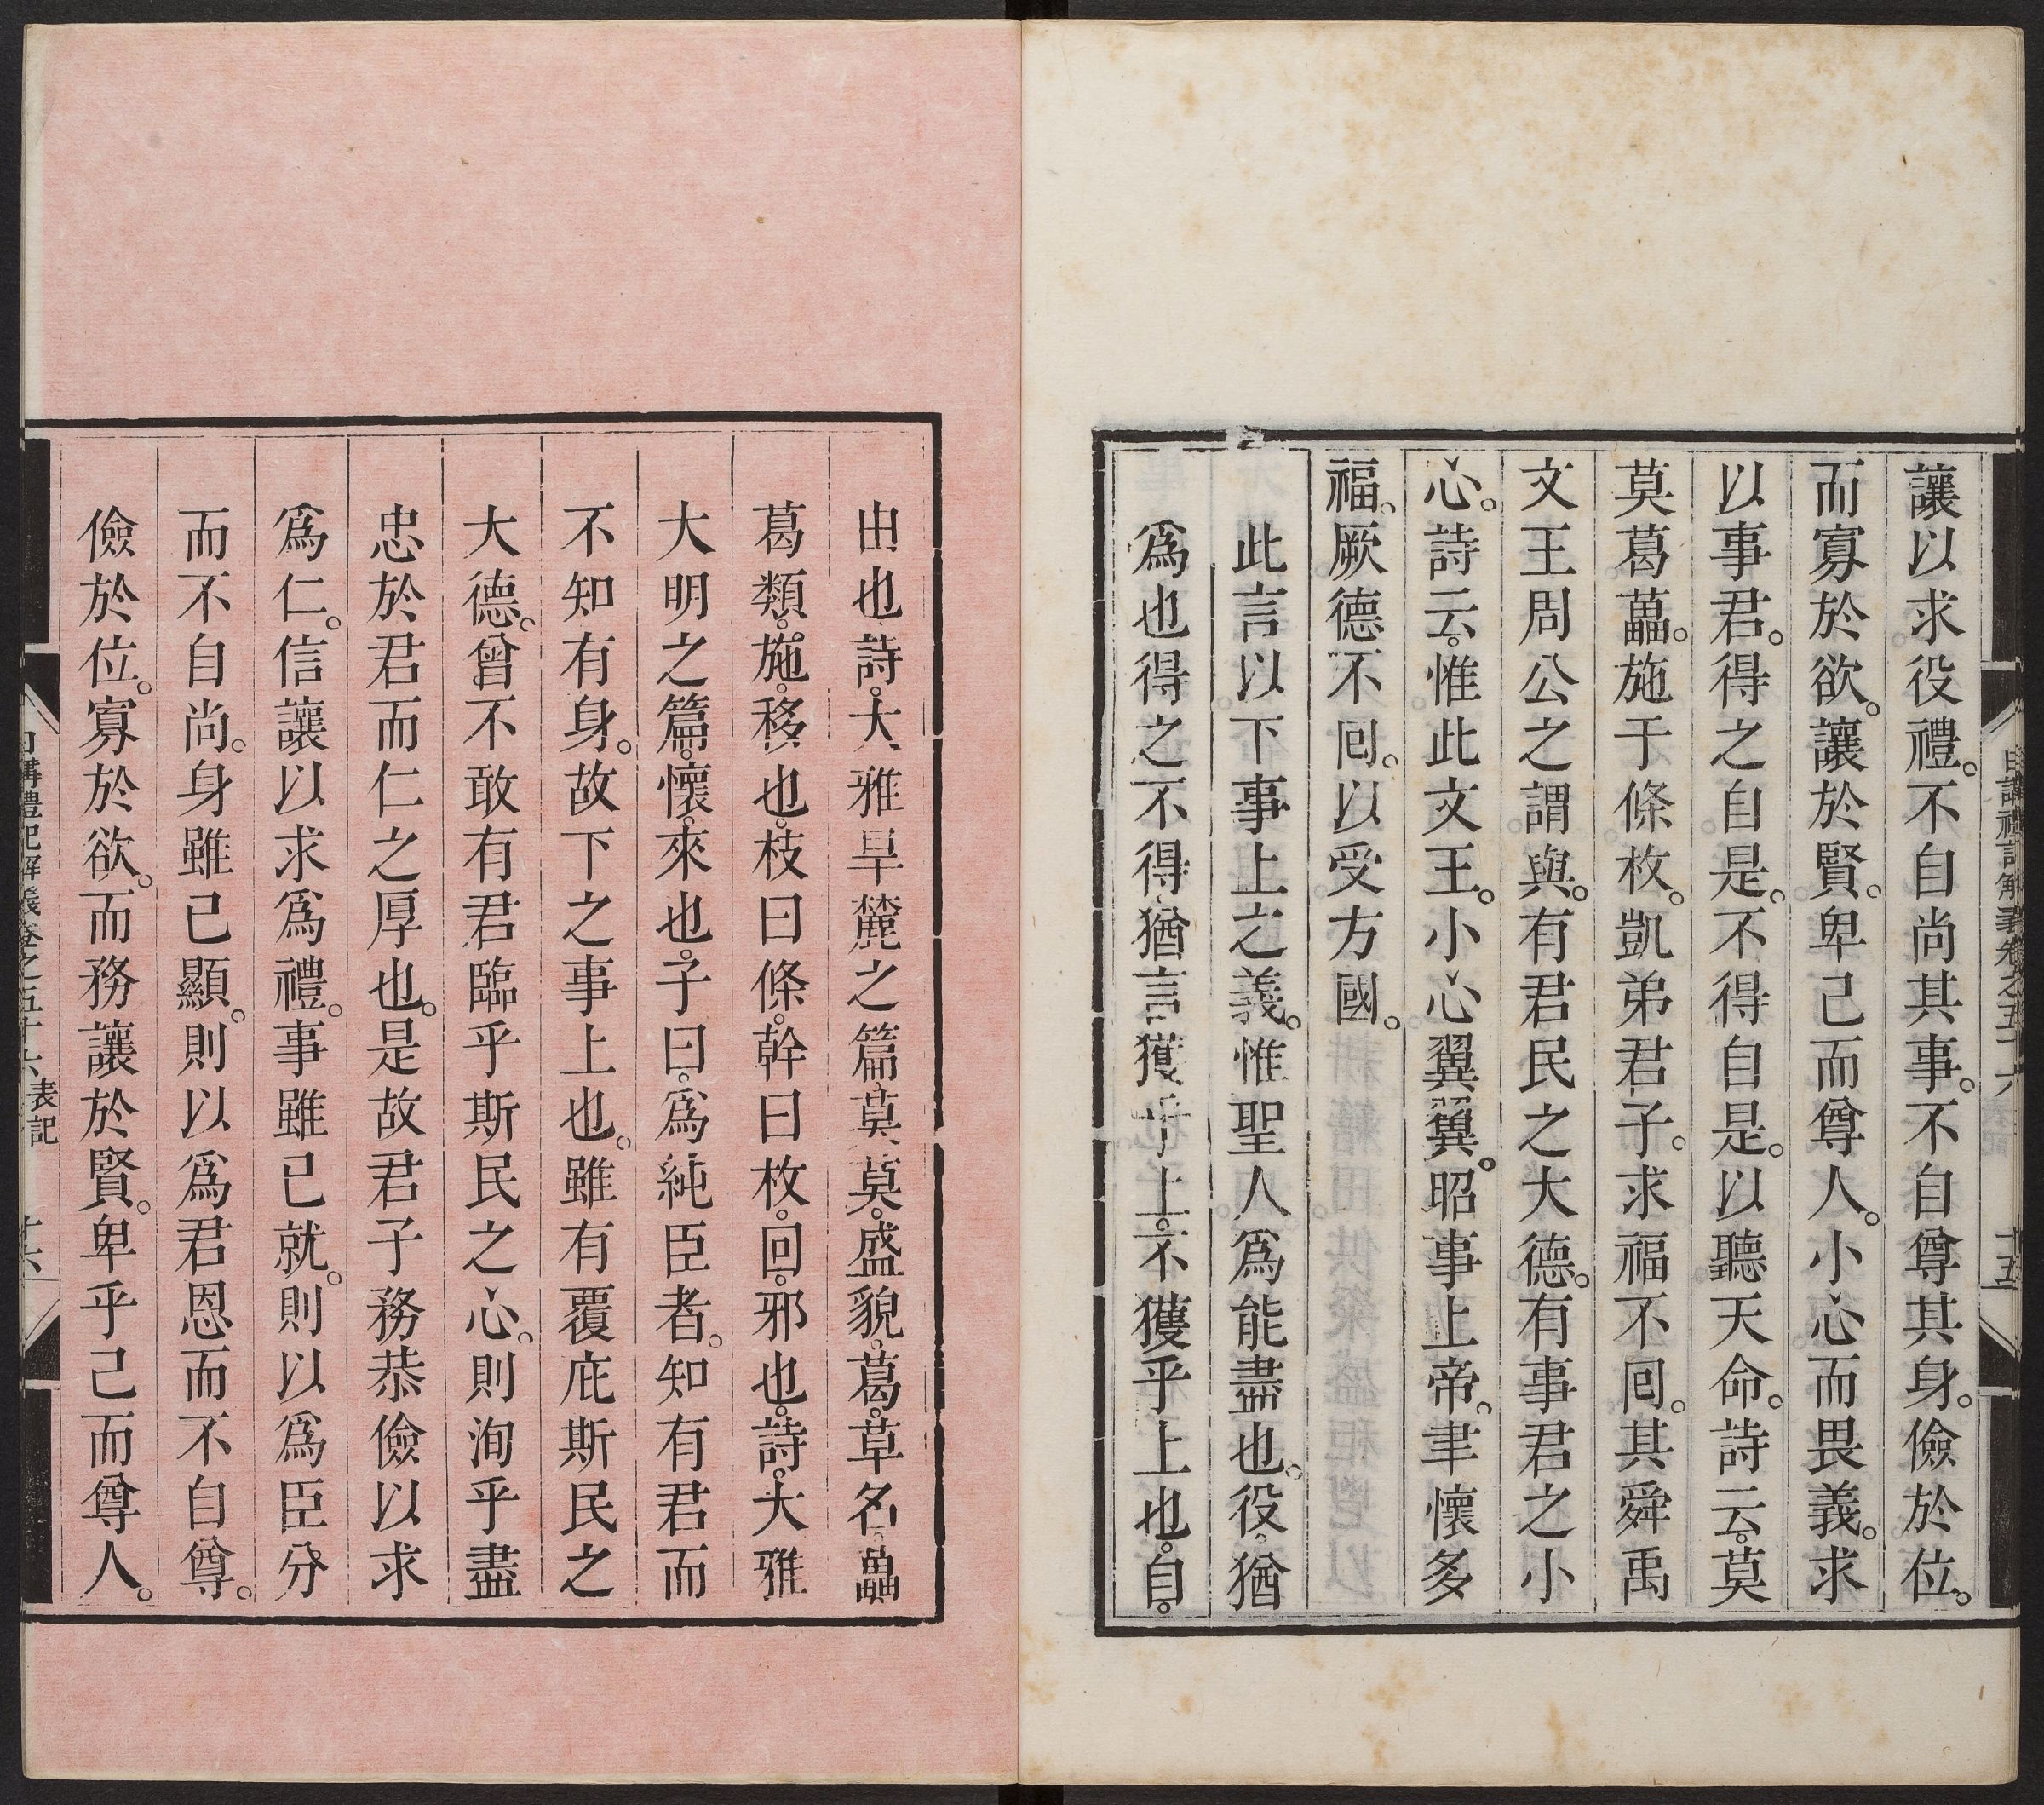 讓以求役禮。不自尚其事。不自尊其身。儉於位。
而寡於欲。讓於賢。卑己而尊人。小心而畏義。求
以事君。得之自是。不得自是。以聽天命。詩云。莫
莫葛藟。施于條枚。凱弟君子。求福不回。其舜禹
文王周公之謂與。有君民之大德。有事君之小
心。詩云。惟此文王。小心翼翼。昭事上帝。聿懷多
福。厥德不回。以受方國。
此言以下事上之義。惟聖人爲能盡也。役。猶
爲也得之不得。猶言獲乎上。不獲乎上也。自。
日講禮記解義卷之五十六
十五
由也。詩。大雅旱麓之篇。莫莫。盛貌。葛。草名。藟
葛類。施。移也。枝曰條。幹曰枚。回。邪也。詩。大雅
大明之篇。懷。來也。子曰。爲純臣者。知有君而
不知有身。故下之事上也。雖有覆庇斯民之
大德。曾不敢有君臨乎斯民之心。則洵乎盡
忠於君而仁之厚也。是故君子務恭儉以求
爲仁。信讓以求爲禮。事雖已就。則以爲臣分
而不自尚。身雖已顯。則以爲君恩而不自尊。
儉於位。寡於欲。而務讓於賢。卑乎己而尊人。
日講禮記解義卷之五十六 表記
十六